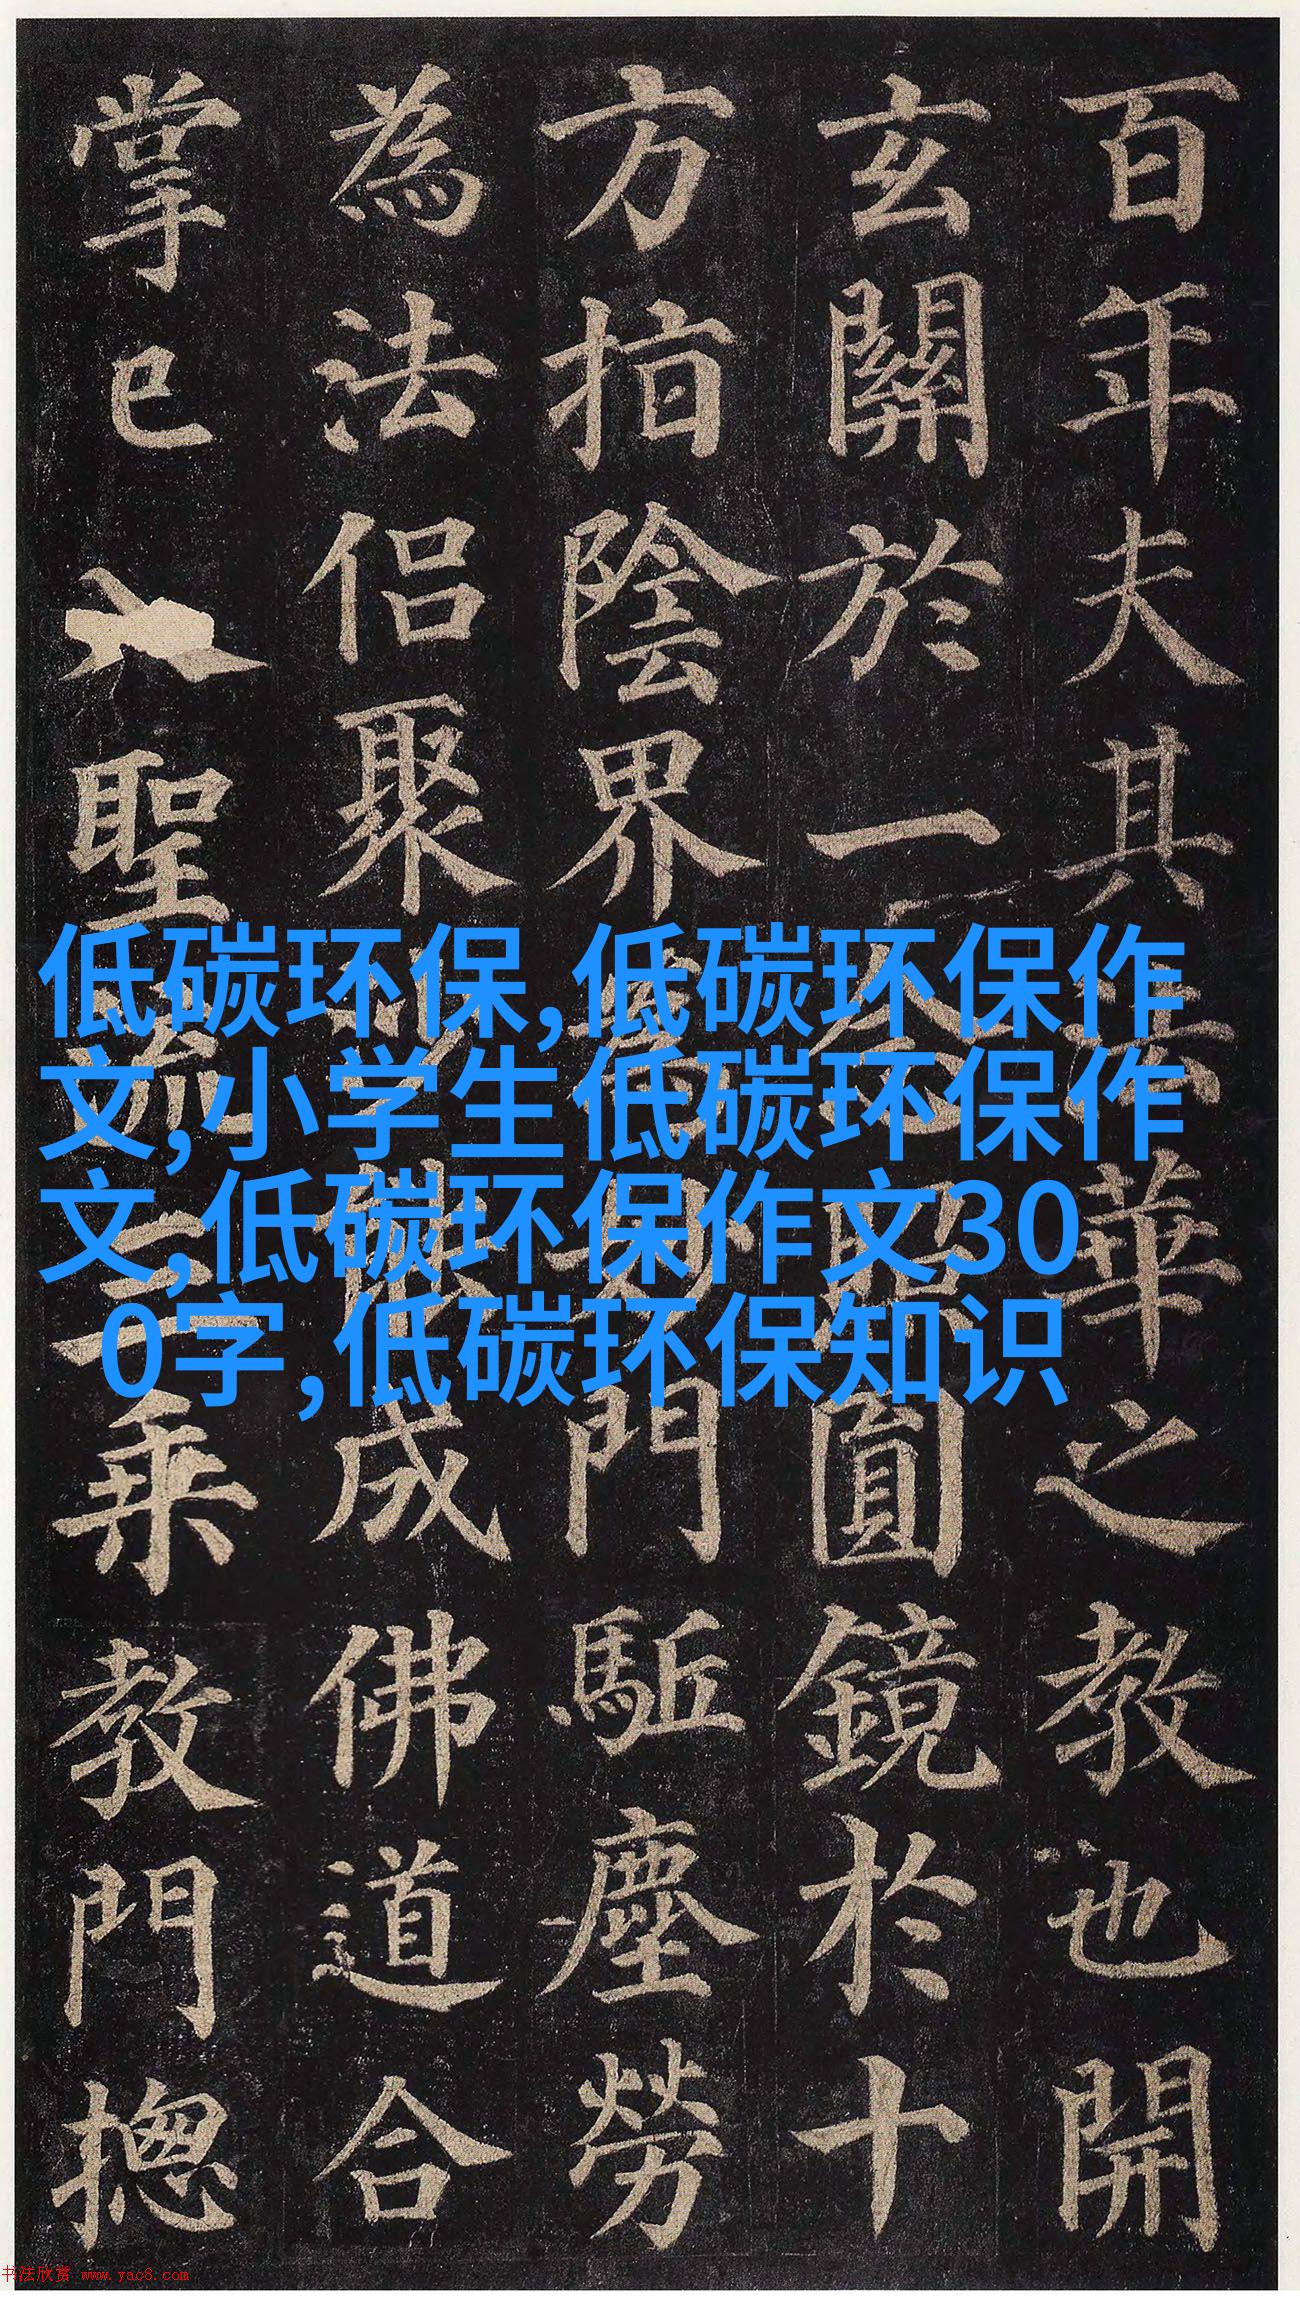 百年夫其法華之教也開
玄關於一念照圓鏡於十
方指陰界爲妙門駈塵勞
為法侶聚沙能成佛道合
掌已聖流三乘教門揔
低碳环保,低碳环保作
文,小学生低碳环保作
文,低碳环保作文30
0字,低碳环保知识
书法欣赏 www.yac8.com